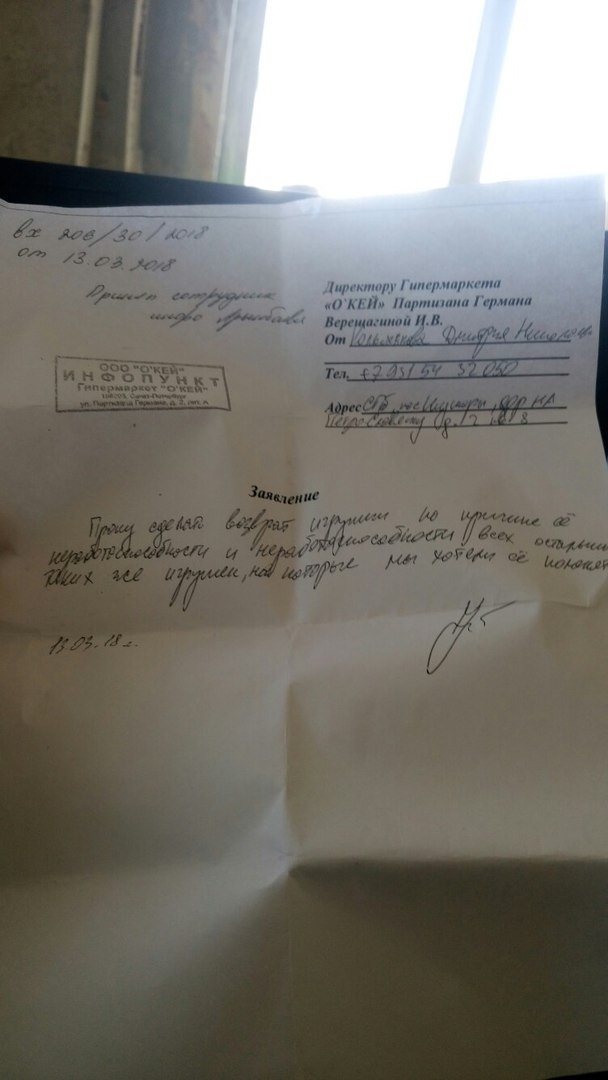 вх 206/30/2018
от 13.03.2018
Принял сотрудник
инфо
ООО "О'КЕЙ"
ИНФОПУНКТ
Гипермаркет "О'КЕЙ"
Санкт-Петербург
ул. Партизана Германа, д. 2, лит. А
Директору Гипермаркета
«О`КЕЙ» Партизана Германа
Верещагиной И.В.
От Дмитрия
Тел. +7 931 54 32 050
Адрес СПб, пос.
д.
Заявление
Прошу сделать возврат игрушки по причине её
неработоспособности и неработоспособности всех остальных
таких же игрушек, на которые мы хотели её поменять
13.03.18 г.